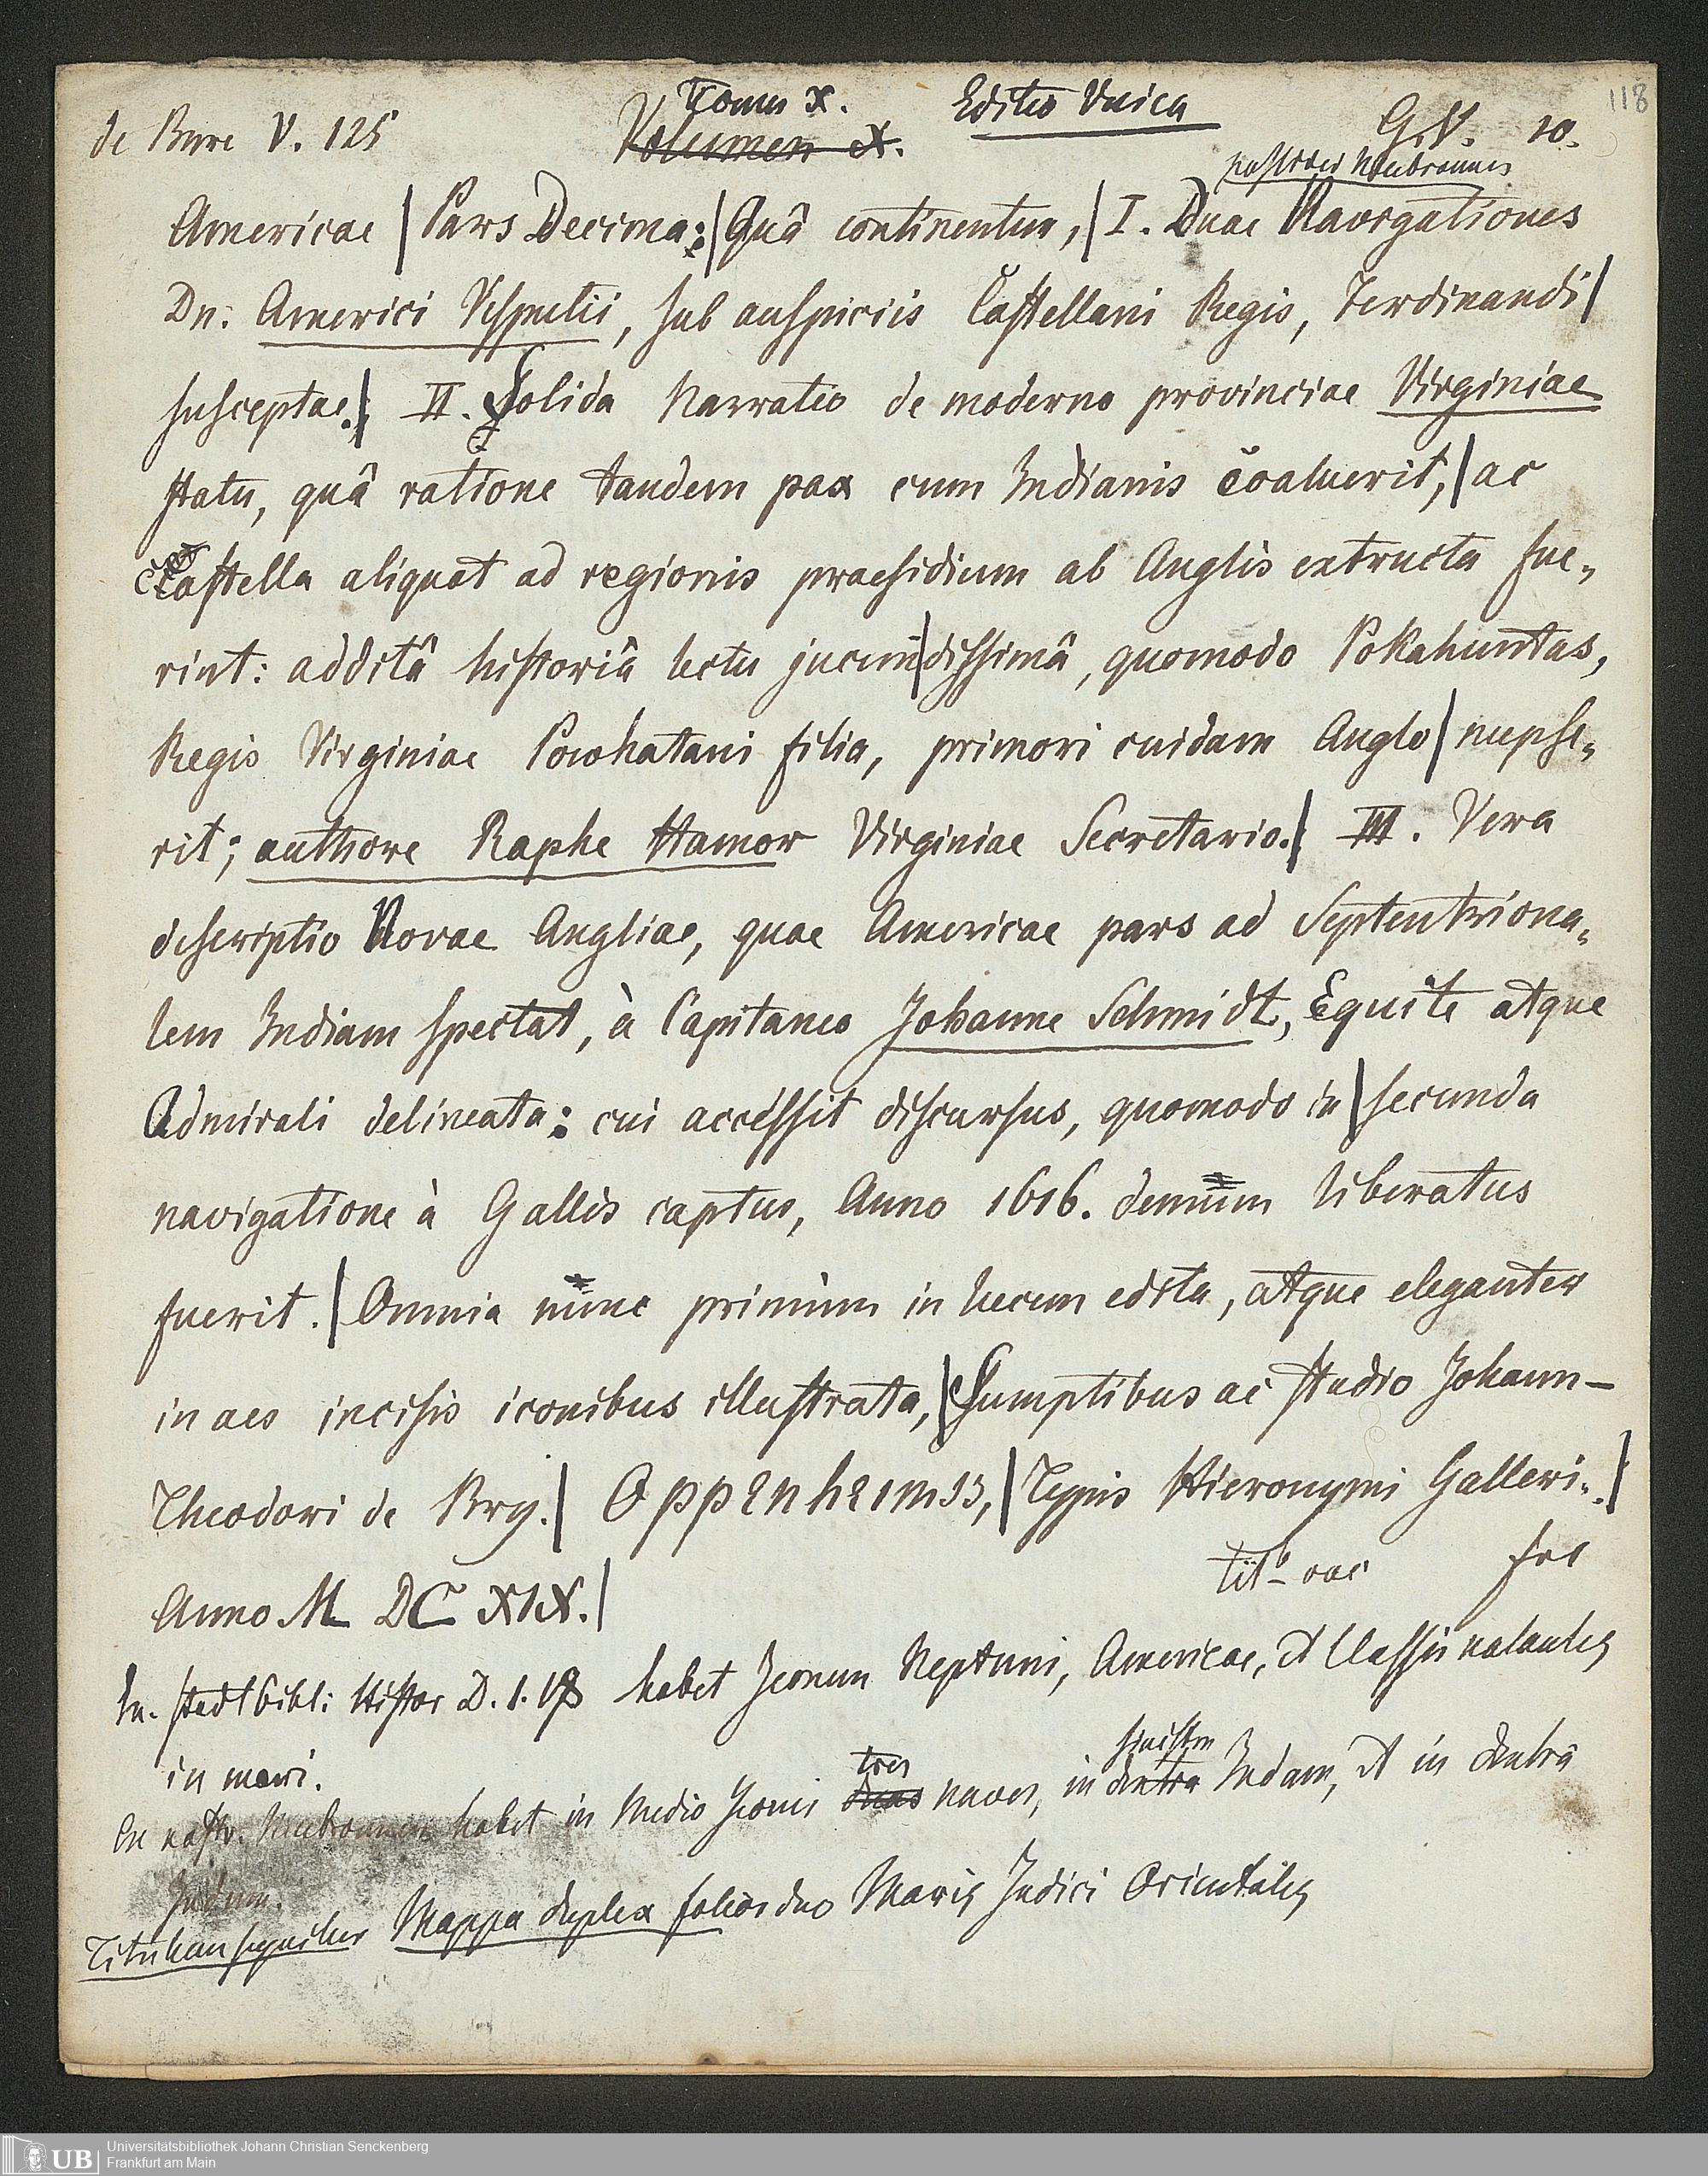 118
de Bure V. 125 Tomus X. Editio Unica G. V. 10.
Volumen X.
Americae | Pars Decima: | Quâ continentur, | I. Duae Navigationes
Dn. Americi Vesputii, sub auspiciis Castellani Regis, Ferdinandi |
susceptae. | II. Solida Narratio de moderno provinciae Virginiae
statu, quâ ratione tandem pax cum Indianis coaluerit, | ac
castella aliquot ad regionis praesidium ab Anglis extructa fue-
rint: additâ historiâ lectu jucun|dissimâ, quomodo Pokahuntas,
Regis Virginiae Powhatani filia, primori cuidam Anglo | nupse-
rit; authore Raphe Hamor Virginiae Secretario. | III. Vera
descriptio Novae Angliae, quae Americae pars ad Septentriona-
lem Indiam spectat, à Capitaneo Johanne Schmidt, Equite atque
Admirali delineata: cui accessit discursus, quomodo in | secunda
navigatione à Gallis captus, Anno 1616. demum liberatus
fuerit. | Omnia nunc primùm in lucem edita, atque eleganter
in aes incisis iconibus illustrata, | Sumptibus ac studio Johann-
Theodori de Bry. | Oppenheimii, | Typis Hieronymi Galleri. |
Anno M DC XIX. |
habet Iconem Neptuni, Americae, et Classis natantis
in mari.
habet in medio Iconis tres duas naves, in sinistra dextra Indam, et in dextrâ
Indum.
Mappa duplex folior duo Maris Indici Orientalis
Universitätsbibliothek Johann Christian Senckenberg
UB Frankfurt am Main